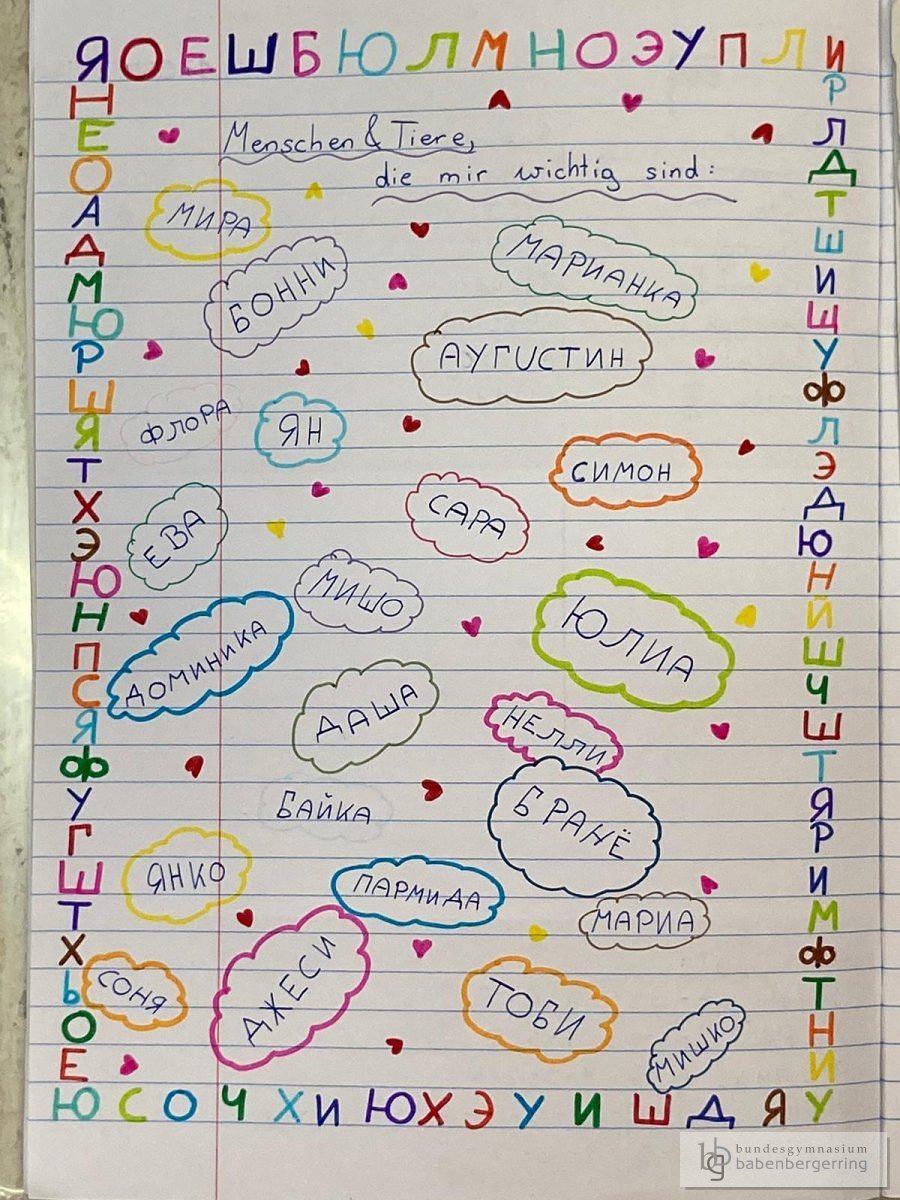 Я О Е Ш Б Ю Л М Н О Э У П Л И
Menschen & Tiere,
die mir wichtig sind:
МИРА
БОННИ
МАРИАНКА
АУГУСТИН
ФЛОРА
ЯН
СИМОН
САРА
ЕВА
МИШО
ЮЛИА
ДОМИНИКА
ДАША
НЕЛЛИ
БАЙКА
БРАНЁ
ЯНКО
ПАРМИДА
МАРИА
СОНЯ
ДЖЕСИ
ТОБИ
МИШКО
Н
Е
О
А
Д
М
Ю
Р
Ш
Я
Т
Х
Э
Ю
Н
П
С
Я
Ф
У
Г
Ш
Т
Х
Ь
О
Е
Р
Л
Д
Т
Ш
И
Щ
У
Ф
Л
Э
Д
Ю
Н
Й
Ш
Ч
Ш
Т
Я
Р
И
М
Ф
Т
Н
И
Ю С О Ч Х И Ю Х Э У И Ш Д Я У
bundesgymnasium
babenbergerring